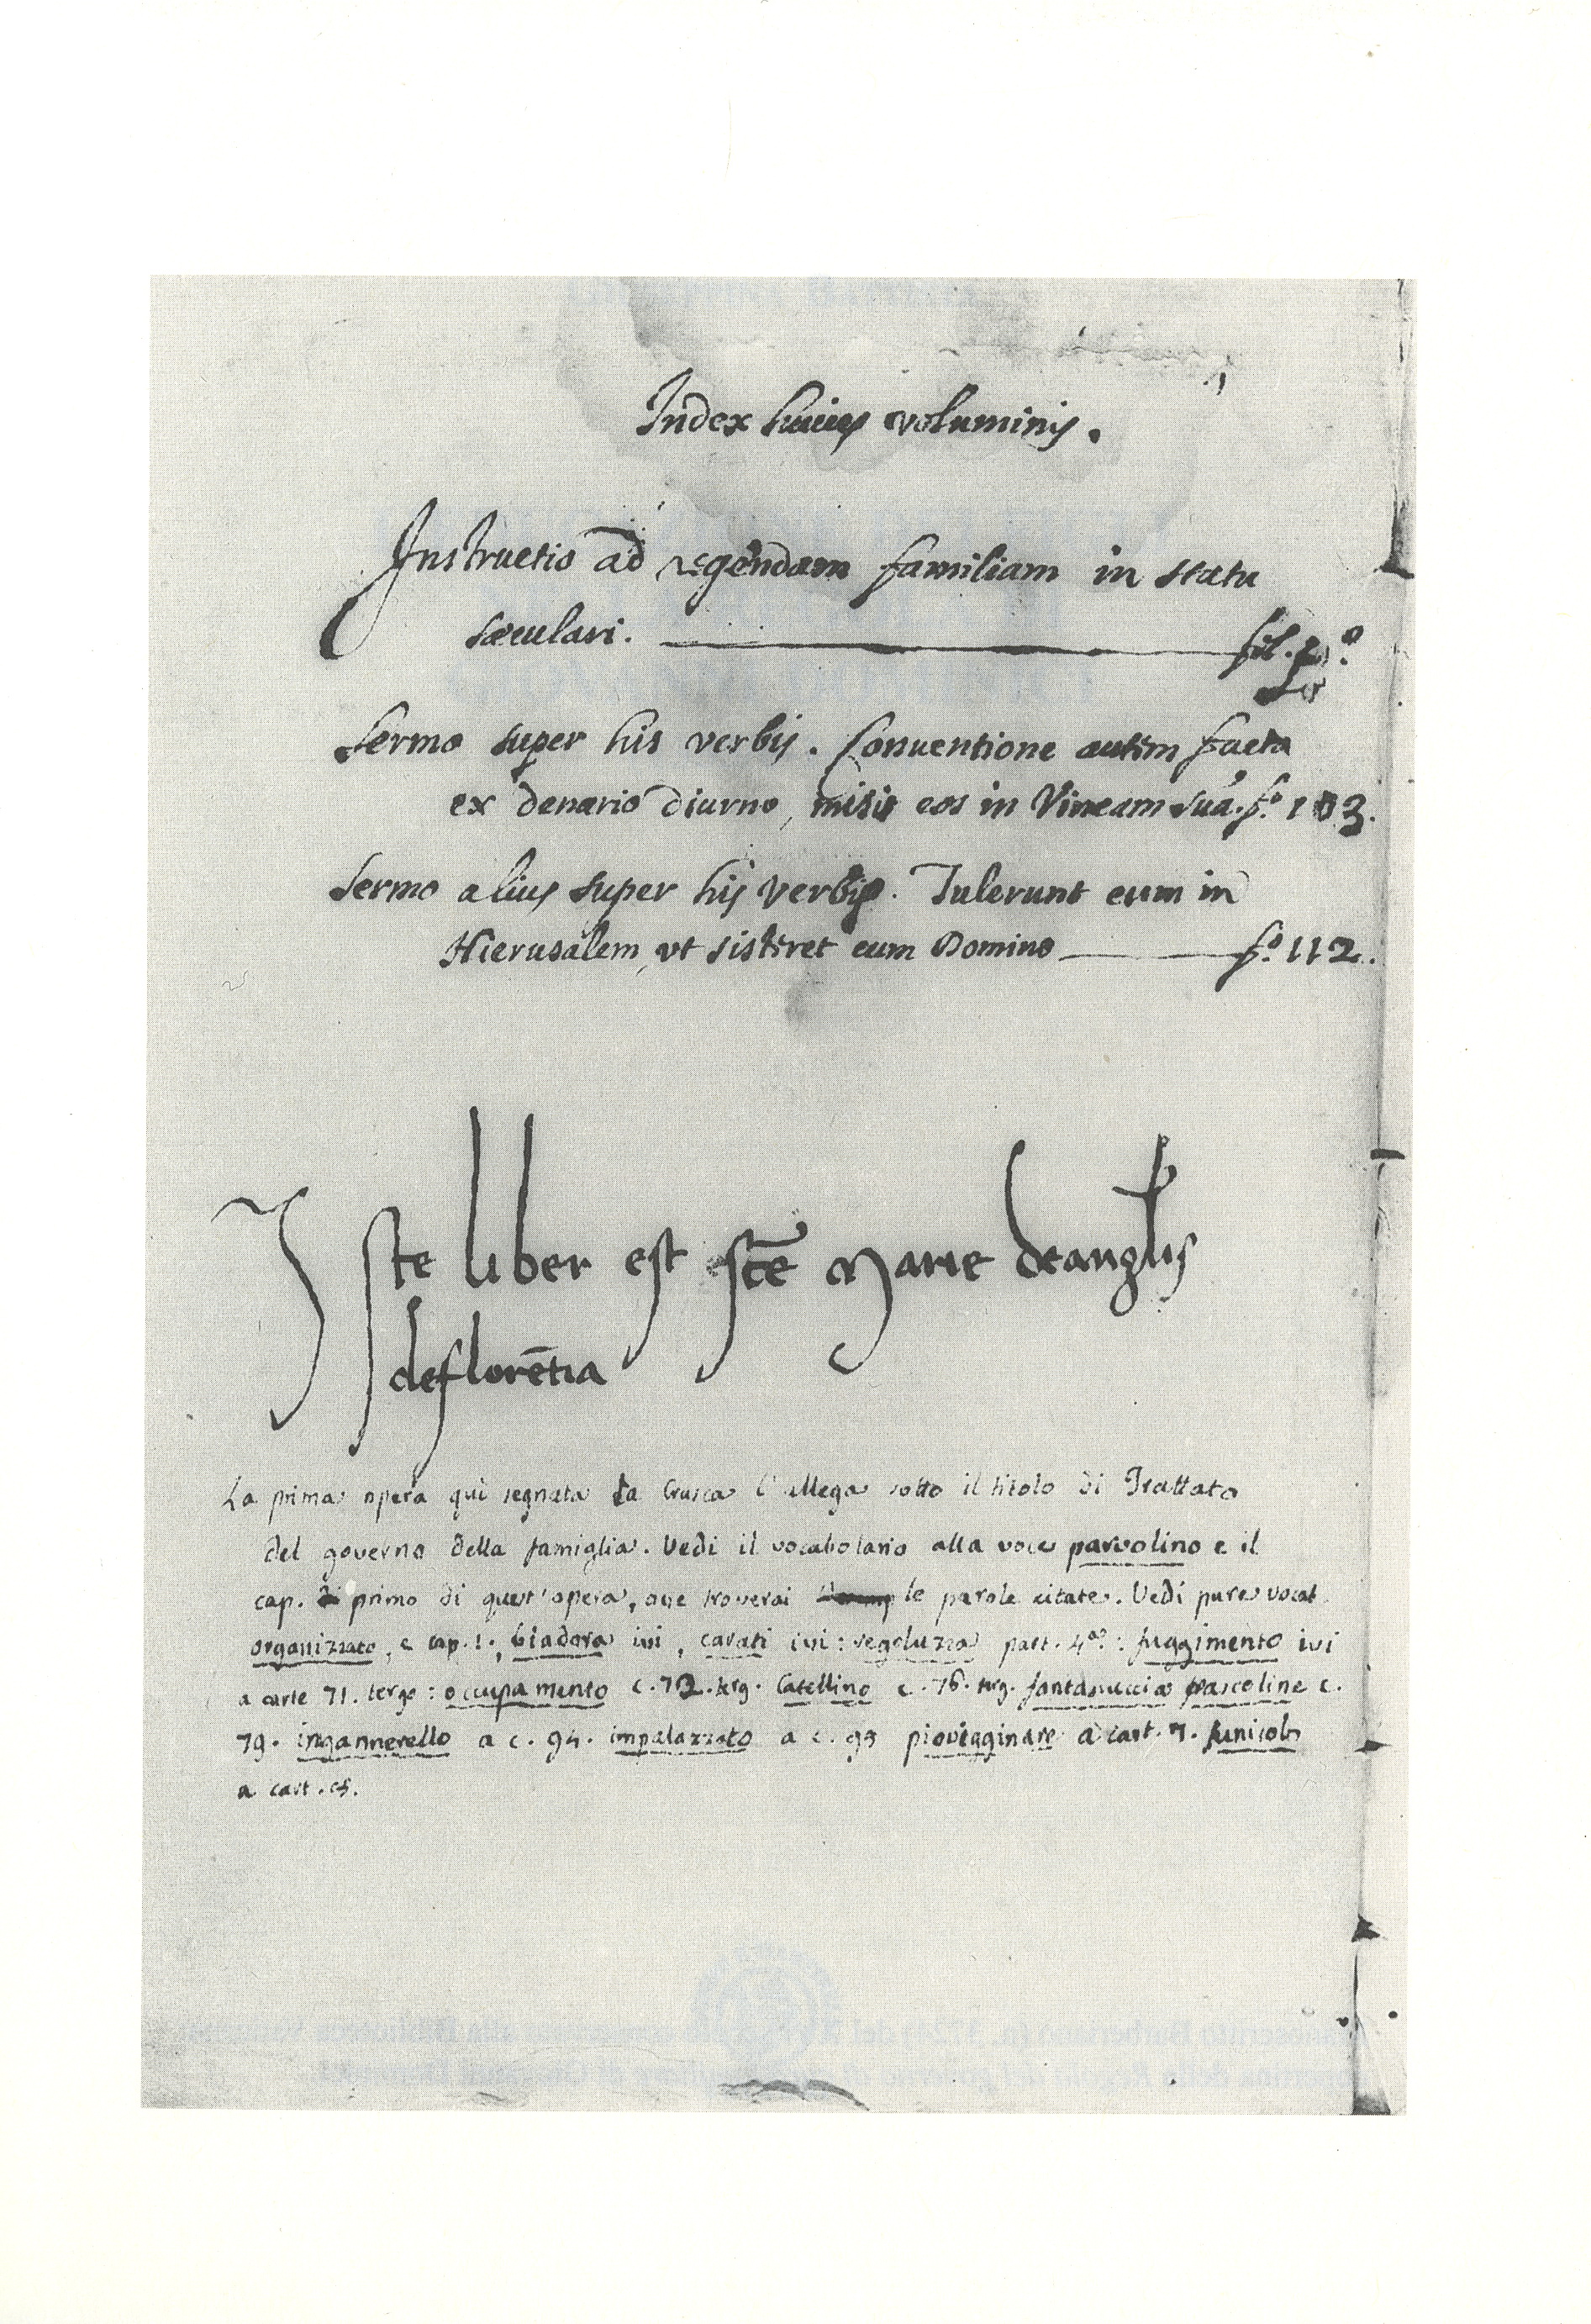 Index huius voluminis.
Instructio ad regendam familiam in statu
sæculari. fol. 2.º
Sermo super his verbis. Conventione autem facta
ex denario diurno, misit eos in Vineam suã. fº. 103.
Sermo alius super his verbis. Tulerunt eum in
Hierusalem, vt sisteret eum Domino fº. 112.
Iste liber est scē Marie de anglis
de florētia
La prima opera qui segnata la Crusca l'allega sotto il titolo di Trattato
del governo della famiglia. Vedi il vocabolario alla voce parvolino e il
cap. primo di quest'opera, ove troverai le parole citate. Vedi pure vocab.
organizzato, e cap. 1., biadora ivi, carati ivi: regoluzza part. 4ª: fuggimento ivi
a carte 71. tergo: occupamento c. 72. terg. Catellino c. 76. terg. fantasuccia pascoline c.
79. ingannerello a c. 94. impalazzato a c. 93 piovegginare a cart. 7. funicoli
a cart.